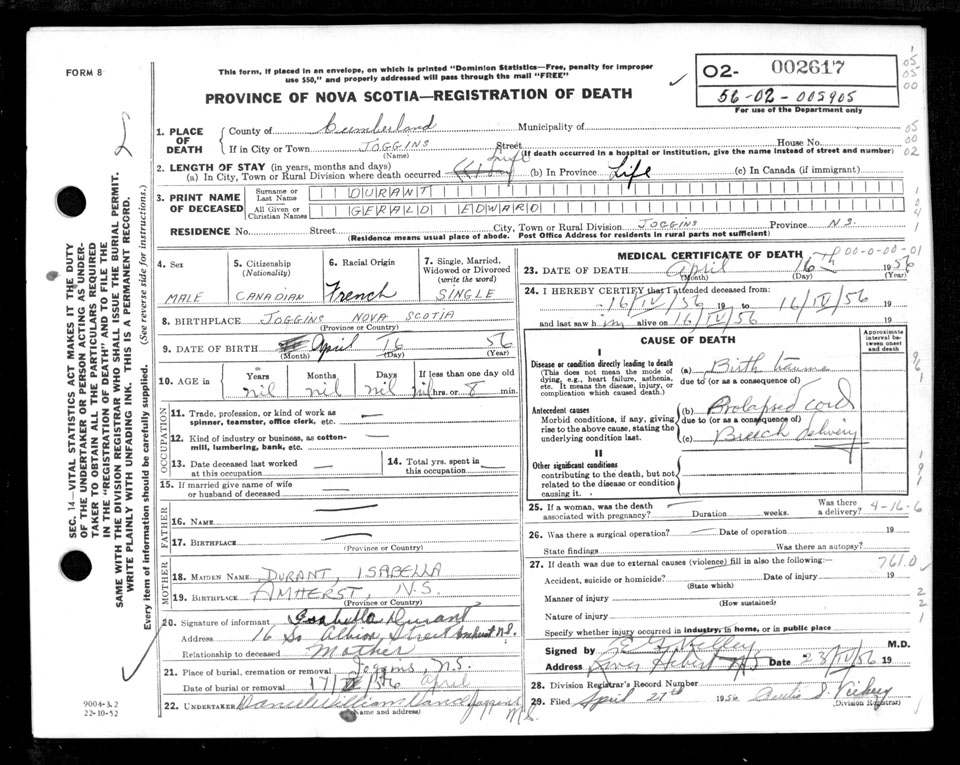 FORM 8
This form, if placed in an envelope, on which is printed "Dominion Statistics—Free, penalty for improper
use $50," and properly addressed will pass through the mail "FREE"
02- 002617
56-02-005905
For use of the Department only
PROVINCE OF NOVA SCOTIA—REGISTRATION OF DEATH
1. PLACE OF DEATH
County of Cumberland Municipality of
If in City or Town JOGGINS Street House No.
(Name) (If death occurred in a hospital or institution, give the name instead of street and number)
2. LENGTH OF STAY (in years, months and days)
(a) In City, Town or Rural Division where death occurred Life (b) In Province Life (c) In Canada (if immigrant)
3. PRINT NAME OF DECEASED
Surname or Last Name DURANT
All Given or Christian Names GERALD EDWARD
RESIDENCE No. Street City, Town or Rural Division JOGGINS Province N.S.
(Residence means usual place of abode. Post Office Address for residents in rural parts not sufficient)
4. Sex MALE
5. Citizenship (Nationality) CANADIAN
6. Racial Origin French
7. Single, Married, Widowed or Divorced (write the word) SINGLE
8. BIRTHPLACE JOGGINS NOVA SCOTIA
(Province or Country)
9. DATE OF BIRTH April 16 56
(Month) (Day) (Year)
10. AGE in Years Months Days If less than one day old
nil nil nil nil hrs. or 8 min.
OCCUPATION
11. Trade, profession or kind of work as
spinner, teamster, office clerk, etc. —
12. Kind of industry or business, as cotton-
mill, lumbering, bank, etc. —
13. Date deceased last worked
at this occupation —
14. Total yrs. spent in
this occupation —
15. If married give name of wife
or husband of deceased —
FATHER
16. NAME —
17. BIRTHPLACE —
(Province or Country)
MOTHER
18. MAIDEN NAME DURANT, ISABELLA
19. BIRTHPLACE AMHERST, N.S.
(Province or Country)
20. Signature of informant Isabella Durant
Address 16 So. Albion Street Amherst N.S.
Relationship to deceased Mother
21. Place of burial, cremation or removal Joggins, N.S.
Date of burial or removal 17/IV/56 April
22. UNDERTAKER Joggins N.S.
(Name and address)
MEDICAL CERTIFICATE OF DEATH
00-0-00-01
23. DATE OF DEATH April 16th 1956
(Month) (Day) (Year)
24. I HEREBY CERTIFY that I attended deceased from:
16/IV/56 19 to 16/IV/56 19
and last saw h im alive on 16/IV/56 19
CAUSE OF DEATH
Approximate interval between onset and death
I
Disease or condition directly leading to death
(This does not mean the mode of
dying, e.g., heart failure, asthenia,
etc. It means the disease, injury, or
complication which caused death.)
(a) Birth trauma
due to (or as a consequence of)
Antecedent causes
Morbid conditions, if any, giving
rise to the above cause, stating the
underlying condition last.
(b) Prolapsed Cord
due to (or as a consequence of)
(c) Breech delivery
II
Other significant conditions
contributing to the death, but not
related to the disease or condition
causing it.
25. If a woman, was the death
associated with pregnancy? Duration weeks. Was there a delivery? 4-16-6
26. Was there a surgical operation? — Date of operation 19
State findings Was there an autopsy?
27. If death was due to external causes (violence) fill in also the following:— 761.0
Accident, suicide or homicide? Date of injury 19
(State which)
Manner of injury
(How sustained)
Nature of injury
Specify whether injury occurred in industry, in home, or in public place
Signed by Kelley M.D.
Address River Hebert N.S. Date 23/IV/56 19
28. Division Registrar's Record Number
29. Filed April 27th 1956
(Division Registrar)
SEC. 14—VITAL STATISTICS ACT MAKES IT THE DUTY
OF THE UNDERTAKER OR PERSON ACTING AS UNDER-
TAKER TO OBTAIN ALL THE PARTICULARS REQUIRED
IN THE "REGISTRATION OF DEATH" AND TO FILE THE
SAME WITH THE DIVISION REGISTRAR WHO SHALL ISSUE THE BURIAL PERMIT.
WRITE PLAINLY WITH UNFADING INK. THIS IS A PERMANENT RECORD.
Every item of information should be carefully supplied. (See reverse side for instructions.)
9004-3.2
22-10-52